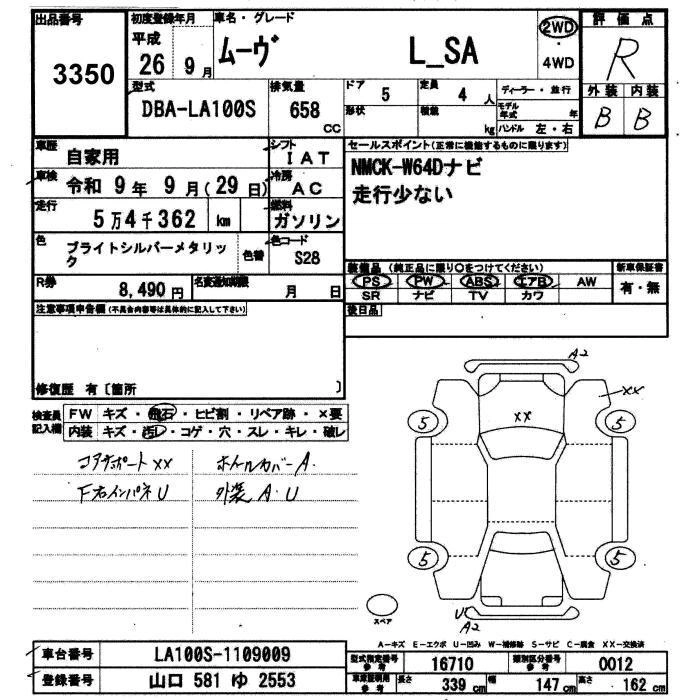 出品番号 3350
初度登録年月 平成 26 9月
車名・グレード ムーヴ L_SA
2WD・4WD
評価点 R
外装 B 内装 B
型式 DBA-LA100S
排気量 658 CC
ドア 5
定員 4 人
形状
積載 kg
ディーラー・並行
モデル年式 年
ハンドル 左・右
車歴 自家用
シフト IAT
車検 令和 9年 9月(29日)
冷房 AC
走行 5万4千362 km
燃料 ガソリン
色 ブライトシルバーメタリック
色替
色コード S28
R券 8,490円
名変通知期限 月 日
セールスポイント(正常に機能するものに限ります)
NMCK-W64Dナビ
走行少ない
装備品(純正品に限り〇をつけてください)
PS PW ABS エアB AW
SR ナビ TV カワ
新車保証書 有・無
後日品
注意事項申告欄(不具合内容等は具体的に記入して下さい)
修復歴 有〔箇所 〕
検査員記入欄
FW キズ・飛石・ヒビ割・リペア跡・×要
内装 キズ・汚レ・コゲ・穴・スレ・キレ・破レ
コアサポート××
ホイールカバーA.
F右インパネU
外装A・U
A2
××
××
5
5
5
5
U
A2
スペア
A-キズ E-エクボ U-凹み W-補修跡 S-サビ C-腐食 XX-交換済
車台番号 LA100S-1109009
登録番号 山口 581 ゆ 2553
型式指定番号参考 16710
類別区分番号参考 0012
車庫証明用参考 長さ 339 cm 幅 147 cm 高さ 162 cm